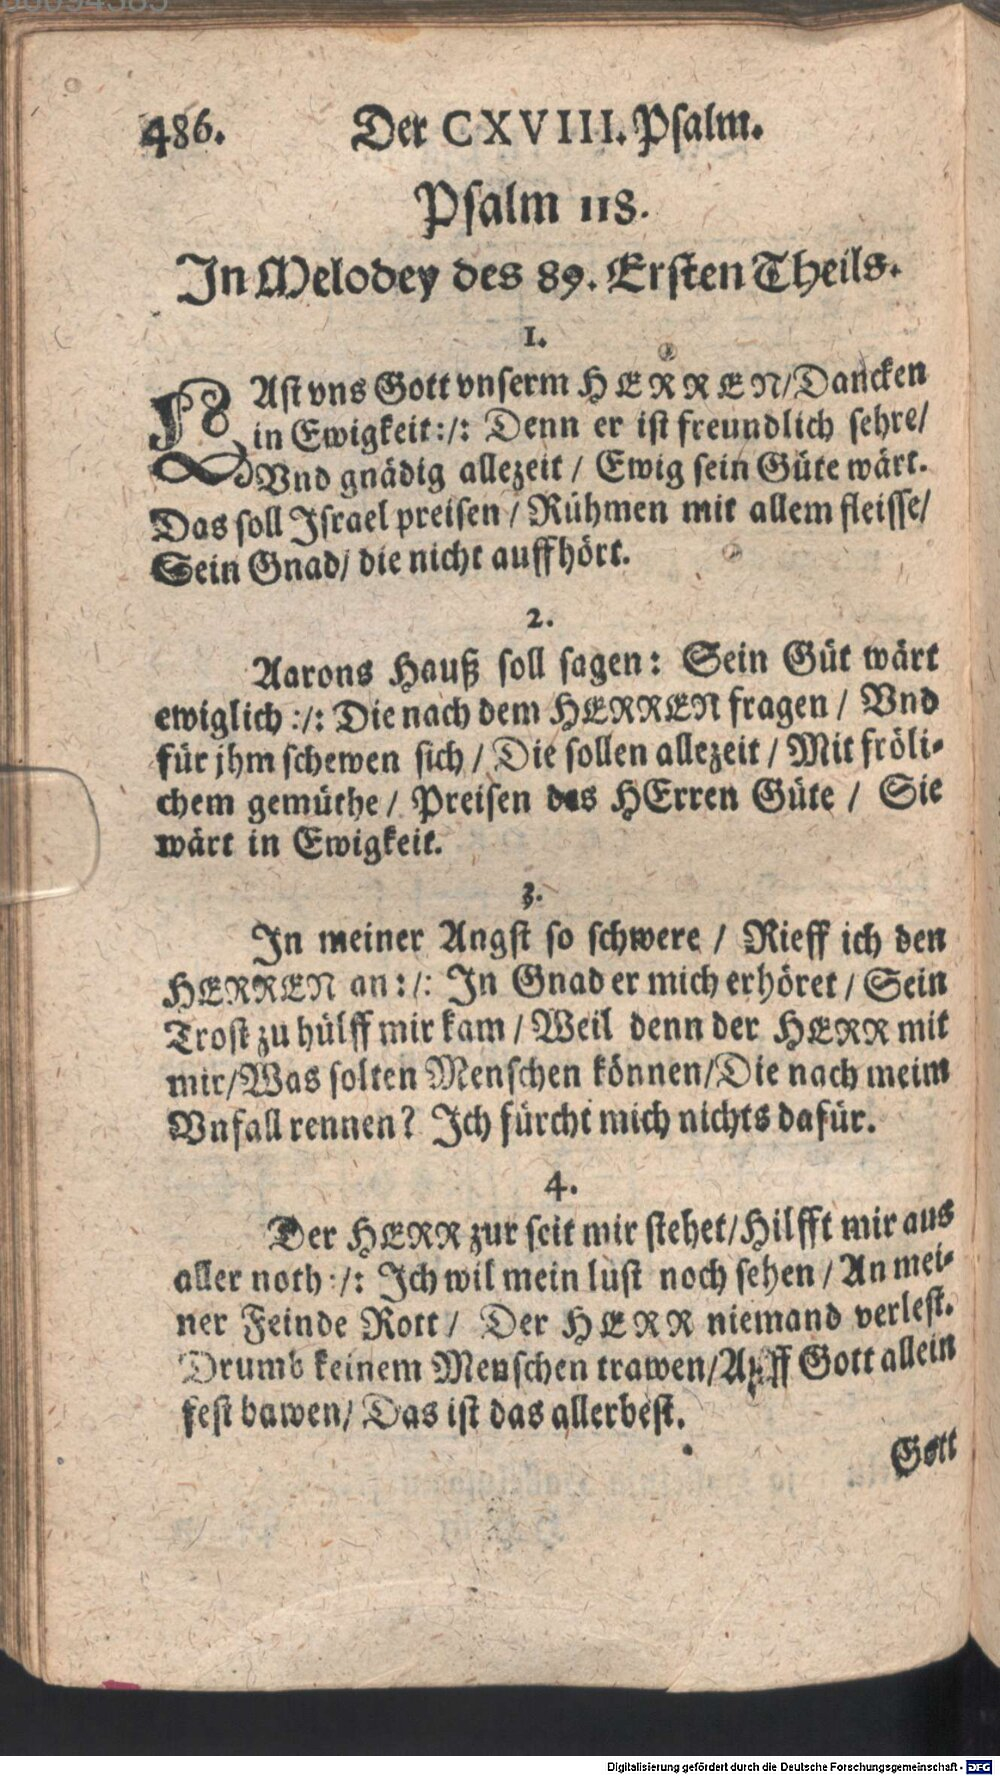 486. Der CXVIII. Psalm.
Psalm 118.
In Melodey des 89. Ersten Theils.
1.
LAst vns Gott vnserm HERREN/ Dancken
in Ewigkeit :/: Denn er ist freundlich sehre/
Vnd gnädig allezeit / Ewig sein Güte wärt.
Das soll Israel preisen / Rühmen mit allem fleisse/
Sein Gnad/ die nicht auffhört.
2.
Aarons Hauß soll sagen: Sein Güt wärt
ewiglich :/: Die nach dem HERREN fragen / Vnd
für jhm schewen sich / Die sollen allezeit / Mit fröli-
chem gemüthe / Preisen des HErren Güte / Sie
wärt in Ewigkeit.
3.
In meiner Angst so schwere / Rieff ich den
HERREN an :/: In Gnad er mich erhöret / Sein
Trost zu hülff mir kam / Weil denn der HERR mit
mir/ Was solten Menschen können/ Die nach meim
Vnfall rennen? Ich fürcht mich nichts dafür.
4.
Der HERR zur seit mir stehet/ Hilfft mir aus
aller noth :/: Ich wil mein lust noch sehen / An mei-
ner Feinde Rott / Der HERR niemand verlest.
Drumb keinem Menschen trawen/ Auff Gott allein
fest bawen/ Das ist das allerbest.
Gott
Digitalisierung gefördert durch die Deutsche Forschungsgemeinschaft - DFG